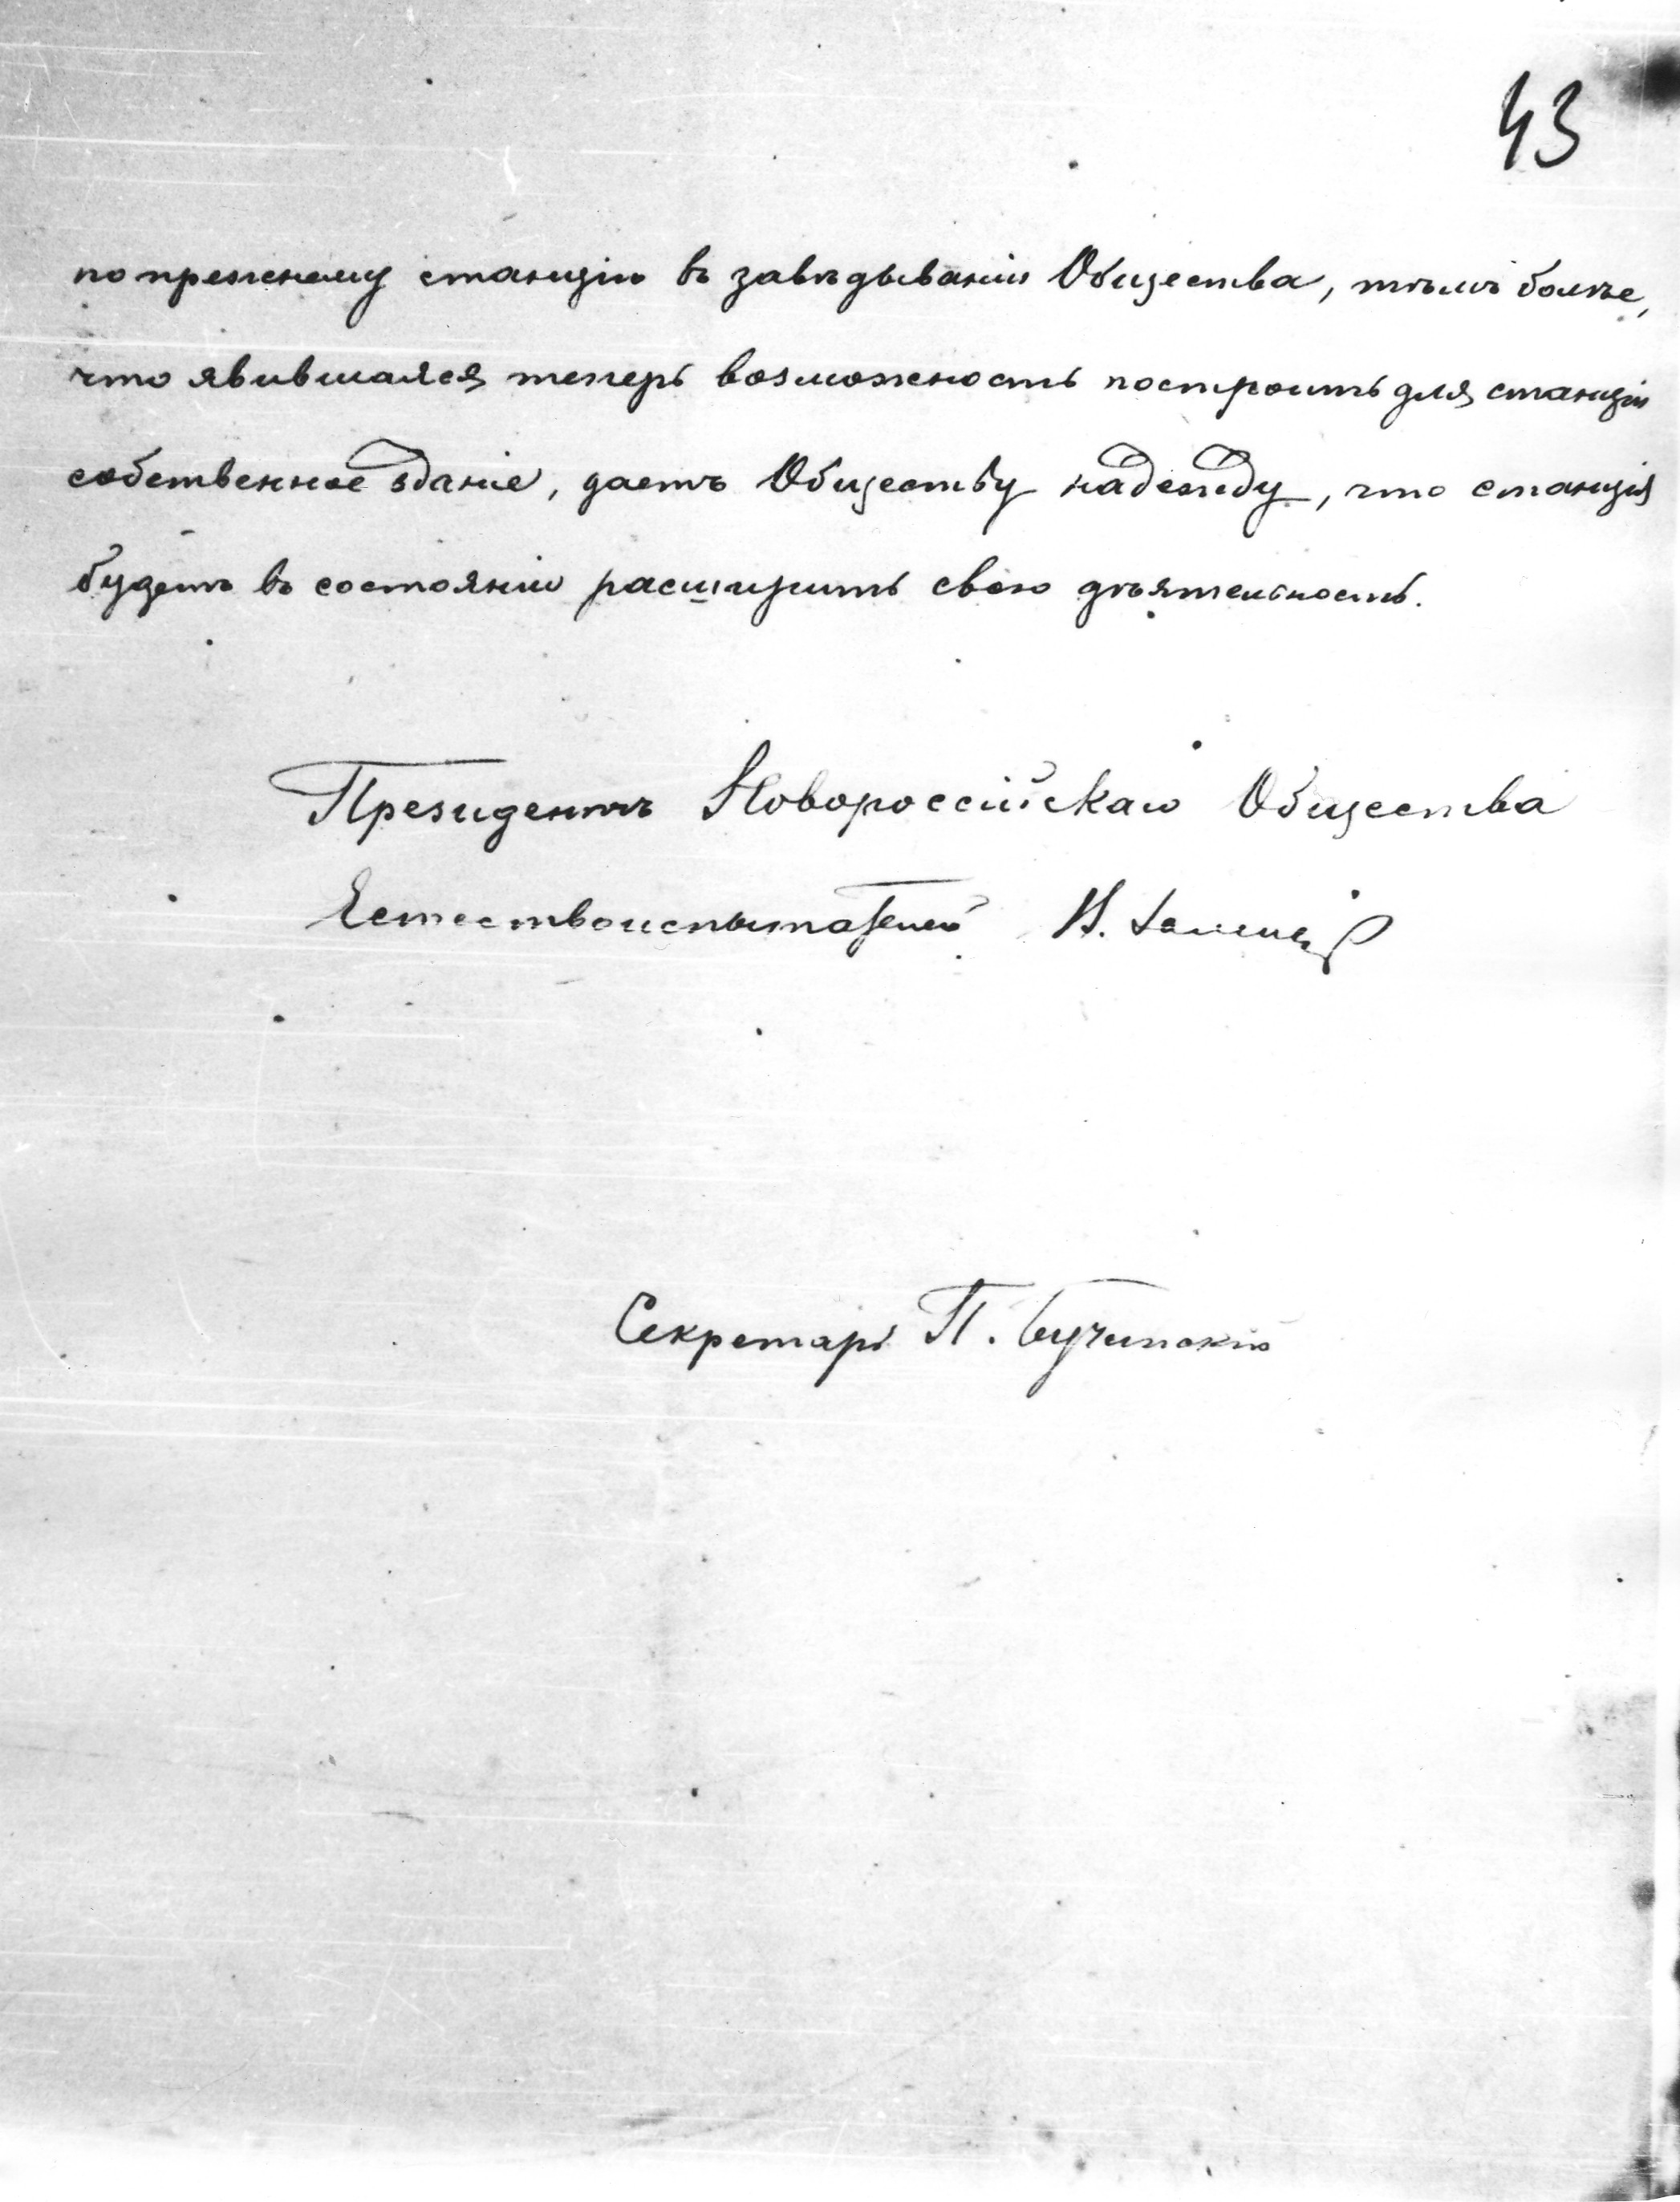 43
по прежнему станцію въ завѣдываніи Общества, тѣмъ болѣе,
что явившаяся теперь возможность построить для станціи
собственное зданіе, даетъ Обществу надежду, что станція
будетъ въ состояніи расширить свою дѣятельность.
Президентъ Новороссійскаго Общества
Естествоиспытателей
Секретарь П. Бучинскій